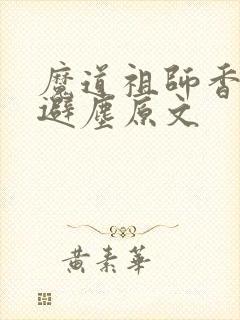 魔道祖師香
避塵原文
黃素華